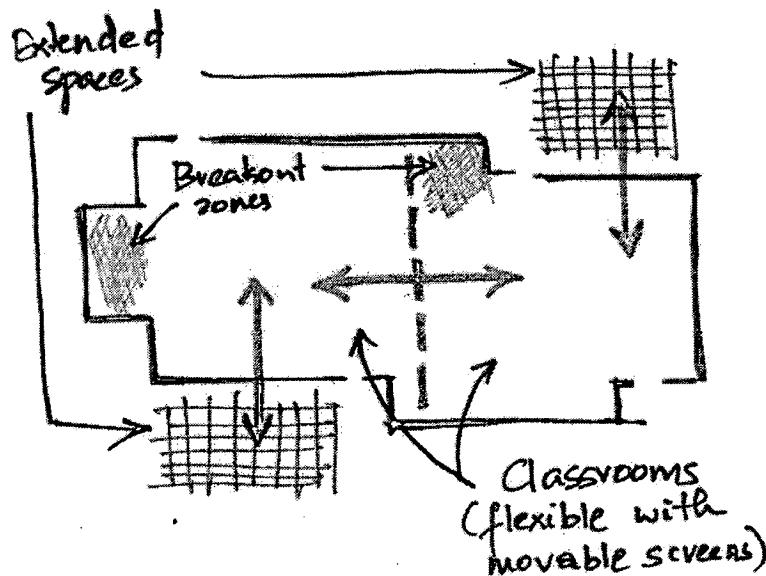 Extended
spaces
Breakout
zones
Classrooms
(flexible with
movable screens)